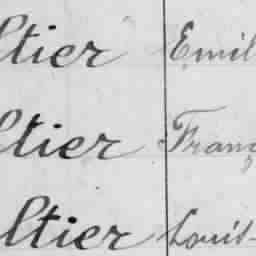 ltier Emil
ltier Franç
ltier Louis